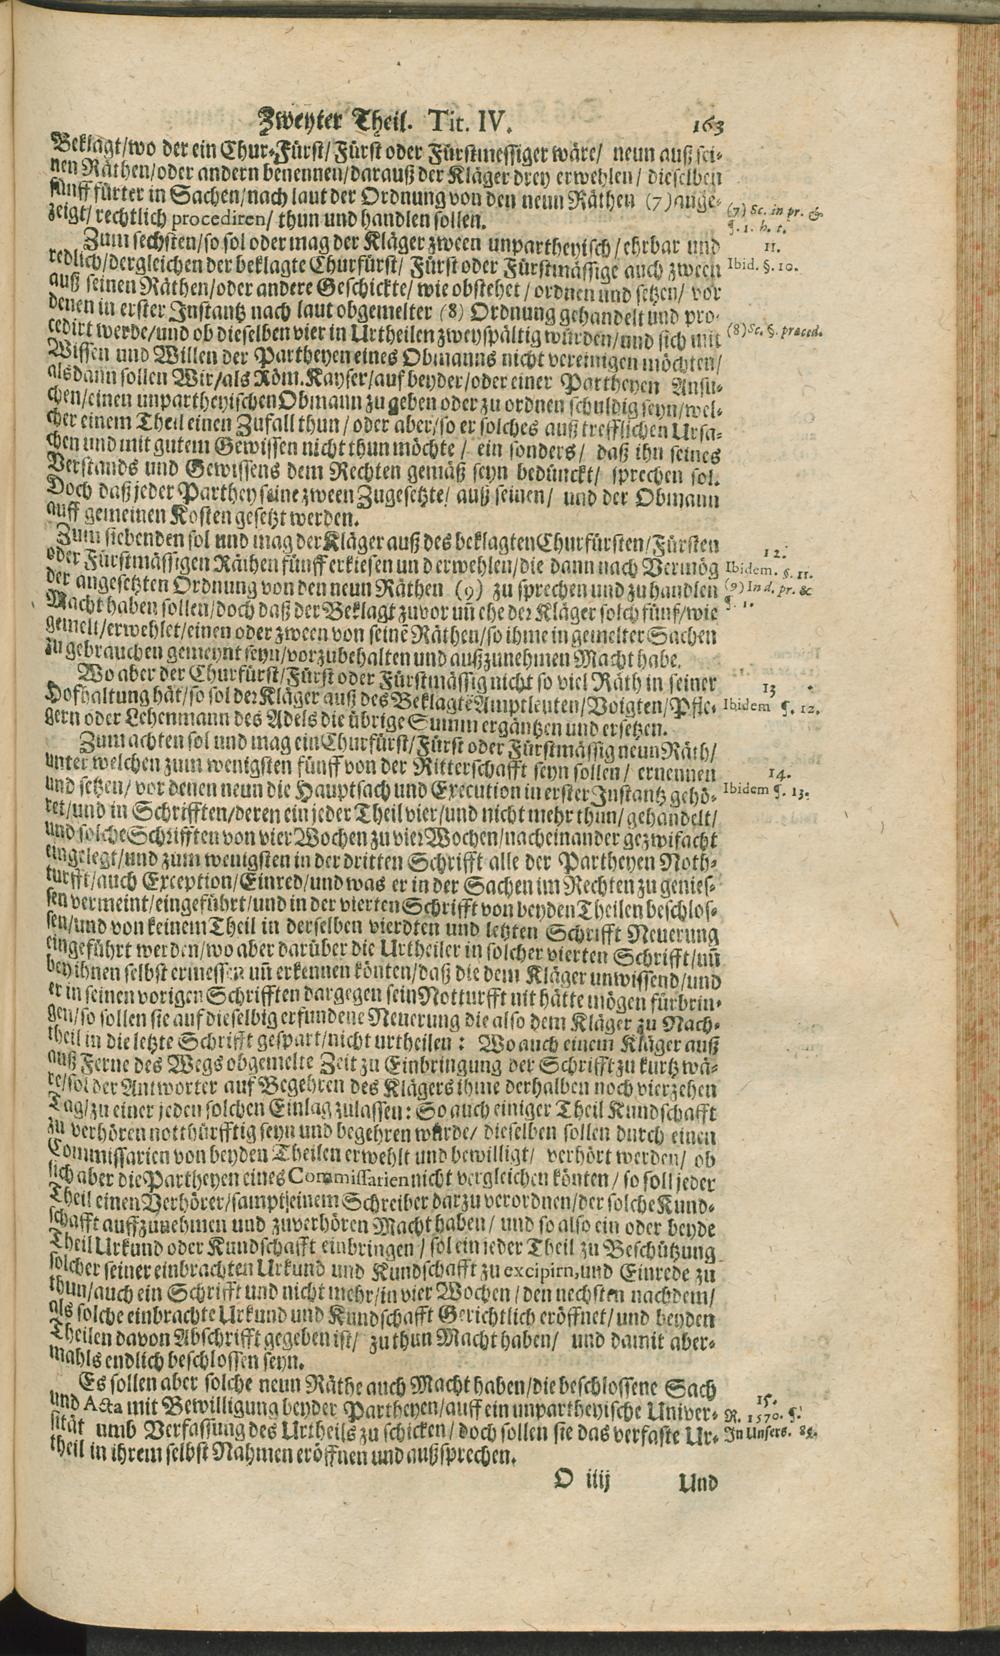 Zweyter Theil. Tit. IV. 163
Beklagt/wo der ein Chur-Fürst/Fürst oder Fürstmessiger wäre/ neun auß sei-
nen Räthen/oder andern benennen/darauß der Kläger drey erwehlen/ dieselben
fünff fürter in Sachen/nach laut der Ordnung von den neun Räthen (7) ange-
zeigt/ rechtlich procediren/ thun und handlen sollen.
(7) Sc. in pr. &
§. 1. h. t.
Zum sechsten/so sol oder mag der Kläger zween unpartheyisch/ehrbar und
redlich/dergleichen der beklagte Churfürst/ Fürst oder Fürstmässige auch zween
auß seinen Räthen/oder andere Geschickte/ wie obstehet/ ordnen und setzen/ vor
denen in erster Instantz nach laut obgemelter (8) Ordnung gehandelt und pro-
cedirt werde/und ob dieselben vier in Urtheilen zweyspältig würden/und sich mit
Wissen und Willen der Partheyen eines Obmanns nicht vereinigen möchten/
alsdann sollen Wir/als Röm. Kayser/auf beyder/oder einer Partheyen Ansu-
chen/einen unpartheyischen Obmann zu geben oder zu ordnen schuldig seyn/wel-
cher einem Theil einen Zufall thun/ oder aber/so er solches auß trefflichen Ursa-
chen und mit gutem Gewissen nicht thun möchte/ ein sonders/ daß ihn seines
Verstands und Gewissens dem Rechten gemäß seyn bedünckt/ sprechen sol.
Doch daß jeder Parthey seine zween Zugesetzte/ auß seinen/ und der Obmann
auff gemeinen Kosten gesetzt werden.
11.
Ibid. §. 10.
(8) Sc. §. præced.
Zum siebenden sol und mag der Kläger auß des beklagten Churfürsten/Fürsten
oder Fürstmässigen Räthen fünff erkiesen und erwehlen/die dann nach Vermög
der angesetzten Ordnung von den neun Räthen (9) zu sprechen und zu handlen
Macht haben sollen/doch daß der Beklagt zuvor uñ ehe der Kläger solch fünf/wie
gemelt/erwehlet/einen oder zween von seinẽ Räthen/so ihme in gemelter Sachen
zu gebrauchen gemeynt seyn/vorzubehalten und außzunehmen Macht habe.
12.
Ibidem. §. 11.
(9) In d. pr. &
§. 1.
Wo aber der Churfürst/Fürst oder Fürstmässig nicht so viel Räth in seiner
Hofhaltung hät/so sol der Kläger auß des Beklagtẽ Amptleuten/Voigten/Pfle-
gern oder Lehenmann des Adels die übrige Summ ergäntzen und ersetzen.
13
Ibidem §. 12.
Zum achten sol und mag ein Churfürst/Fürst oder Fürstmässig neun Räth/
unter welchen zum wenigsten fünff von der Ritterschafft seyn sollen/ ernennen
und setzen/ vor denen neun die Hauptsach und Execution in erster Instantz gehö-
ret/und in Schrifften/deren ein jeder Theil vier/und nicht mehr thun/ gehandelt/
und solche Schrifften von vier Wochen zu vier Wochen/nacheinander gezwifacht
eingelegt/und zum wenigsten in der dritten Schrifft alle der Partheyen Noth-
turfft/auch Exception/Einred/und was er in der Sachen im Rechten zu genies-
sen vermeint/eingeführt/und in der vierten Schrifft von beyden Theilen beschlos-
sen/und von keinem Theil in derselben vierdten und letzten Schrifft Neuerung
eingeführt werden/wo aber darüber die Urtheiler in solcher vierten Schrifft/uñ
bey ihnen selbst ermessen uñ erkennen könten/daß die dem Kläger unwissend/und
er in seinen vorigen Schrifften dargegen sein Notturfft nit hätte mögen fürbrin-
gen/so sollen sie auf dieselbig erfundene Neuerung die also dem Kläger zu Nach-
theil in die letzte Schrifft gespart/nicht urtheilen: Wo auch einem Kläger auß
auß Ferne des Wegs obgemelte Zeit zu Einbringung der Schrifft zu kurtz wä-
re/sol der Antworter auf Begehren des Klägers ihme derhalben noch vierzehen
Tag/zu einer jeden solchen Einlag zulassen: So auch einiger Theil Kundschafft
zu verhören notthürfftig seyn und begehren würde/ dieselben sollen durch einen
Commissarien von beyden Theilen erwehlt und bewilligt/ verhört werden/ ob
sich aber die Partheyen eines Commissarien nicht vergleichen könten/ so soll jeder
Theil einen Verhörer/sampt seinem Schreiber darzu verordnen/der solche Kund-
schafft auffzunehmen und zuverhören Macht haben/ und so also ein oder beyde
Theil Urkund oder Kundschafft einbringen/ sol ein jeder Theil zu Beschützung
solcher seiner einbrachten Urkund und Kundschafft zu excipirn, und Einrede zu
thun/auch ein Schrifft und nicht mehr/in vier Wochen/ den nechsten nachdem/
als solche einbrachte Urkund und Kundschafft Gerichtlich eröffnet/und beyden
Theilen davon Abschrifft gegeben ist/ zu thun Macht haben/ und damit aber-
mahls endlich beschlossen seyn.
14.
Ibidem §. 13.
Es sollen aber solche neun Räthe auch Macht haben/die beschlossene Sach
und Acta mit Bewilligung beyder Partheyen/auff ein unpartheyische Univer-
sität umb Verfassung des Urtheils zu schicken/ doch sollen sie das verfaste Ur-
theil in ihrem selbst Nahmen eröffnen und außsprechen.
15.
R. 1570. §.
In Unsers. 85.
O iiij Und